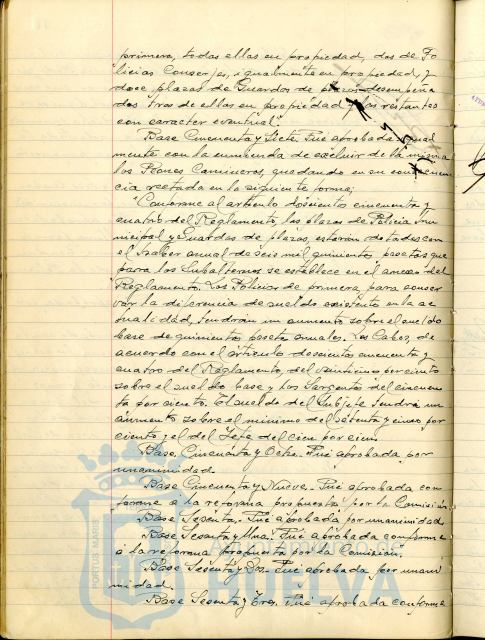 primera, todas ellas en propiedad, dos de Po-
licias Conserjes, igualmente en propiedad, y
doce plazas de Guardas de plazas desempeña
das tres de ellas en propiedad y las restantes
con caracter eventual".
Base Cincuenta y Siete. Fué aprobada igual
mente con la enmienda de excluir de la misma
los Peones Camineros, quedando en su consecuen
cia redactada en la siguiente forma;
"Conforme al articulo doscientos cincuenta y
cuatro del Reglamento, las plazas de Policia Mu
nicipal y Guardas de plazas, estarán dotadas con
el haber anual de seis mil quinientas pesetas que
para los Subalternos se establece en el anexo del
Reglamento. Los Policias de primera, para conser
var la diferencia de sueldo existente en la ac
tualidad, tendrán un aumento sobre el sueldo
base de quinientas pesetas anuales. Los Cabos, de
acuerdo con el articulo doscientos cincuenta y
cuatro del Reglamento, del veinticinco por ciento
sobre el sueldo base y los Sargentos del cincuen
ta por ciento. El sueldo del Subjefe tendrá un
aumento sobre el minimo del setenta y cinco por
ciento y el del Jefe del cien por cien.
Base Cincuenta y Ocho. Fué aprobada por
unanimidad.
Base Cincuenta y Nueve. Fué aprobada con
forme a la reforma propuesta por la Comisión.
Base Sesenta. Fué aprobada por unanimidad.
Base Sesenta y Una. Fué aprobada conforme
a la reforma propuesta por la Comisión.
Base Sesenta y Dos. Fué aprobada por unani
midad.
Base Sesenta y Tres. Fué aprobada conforme
PORTUS MARIS
Ayuntamiento de
HUELVA